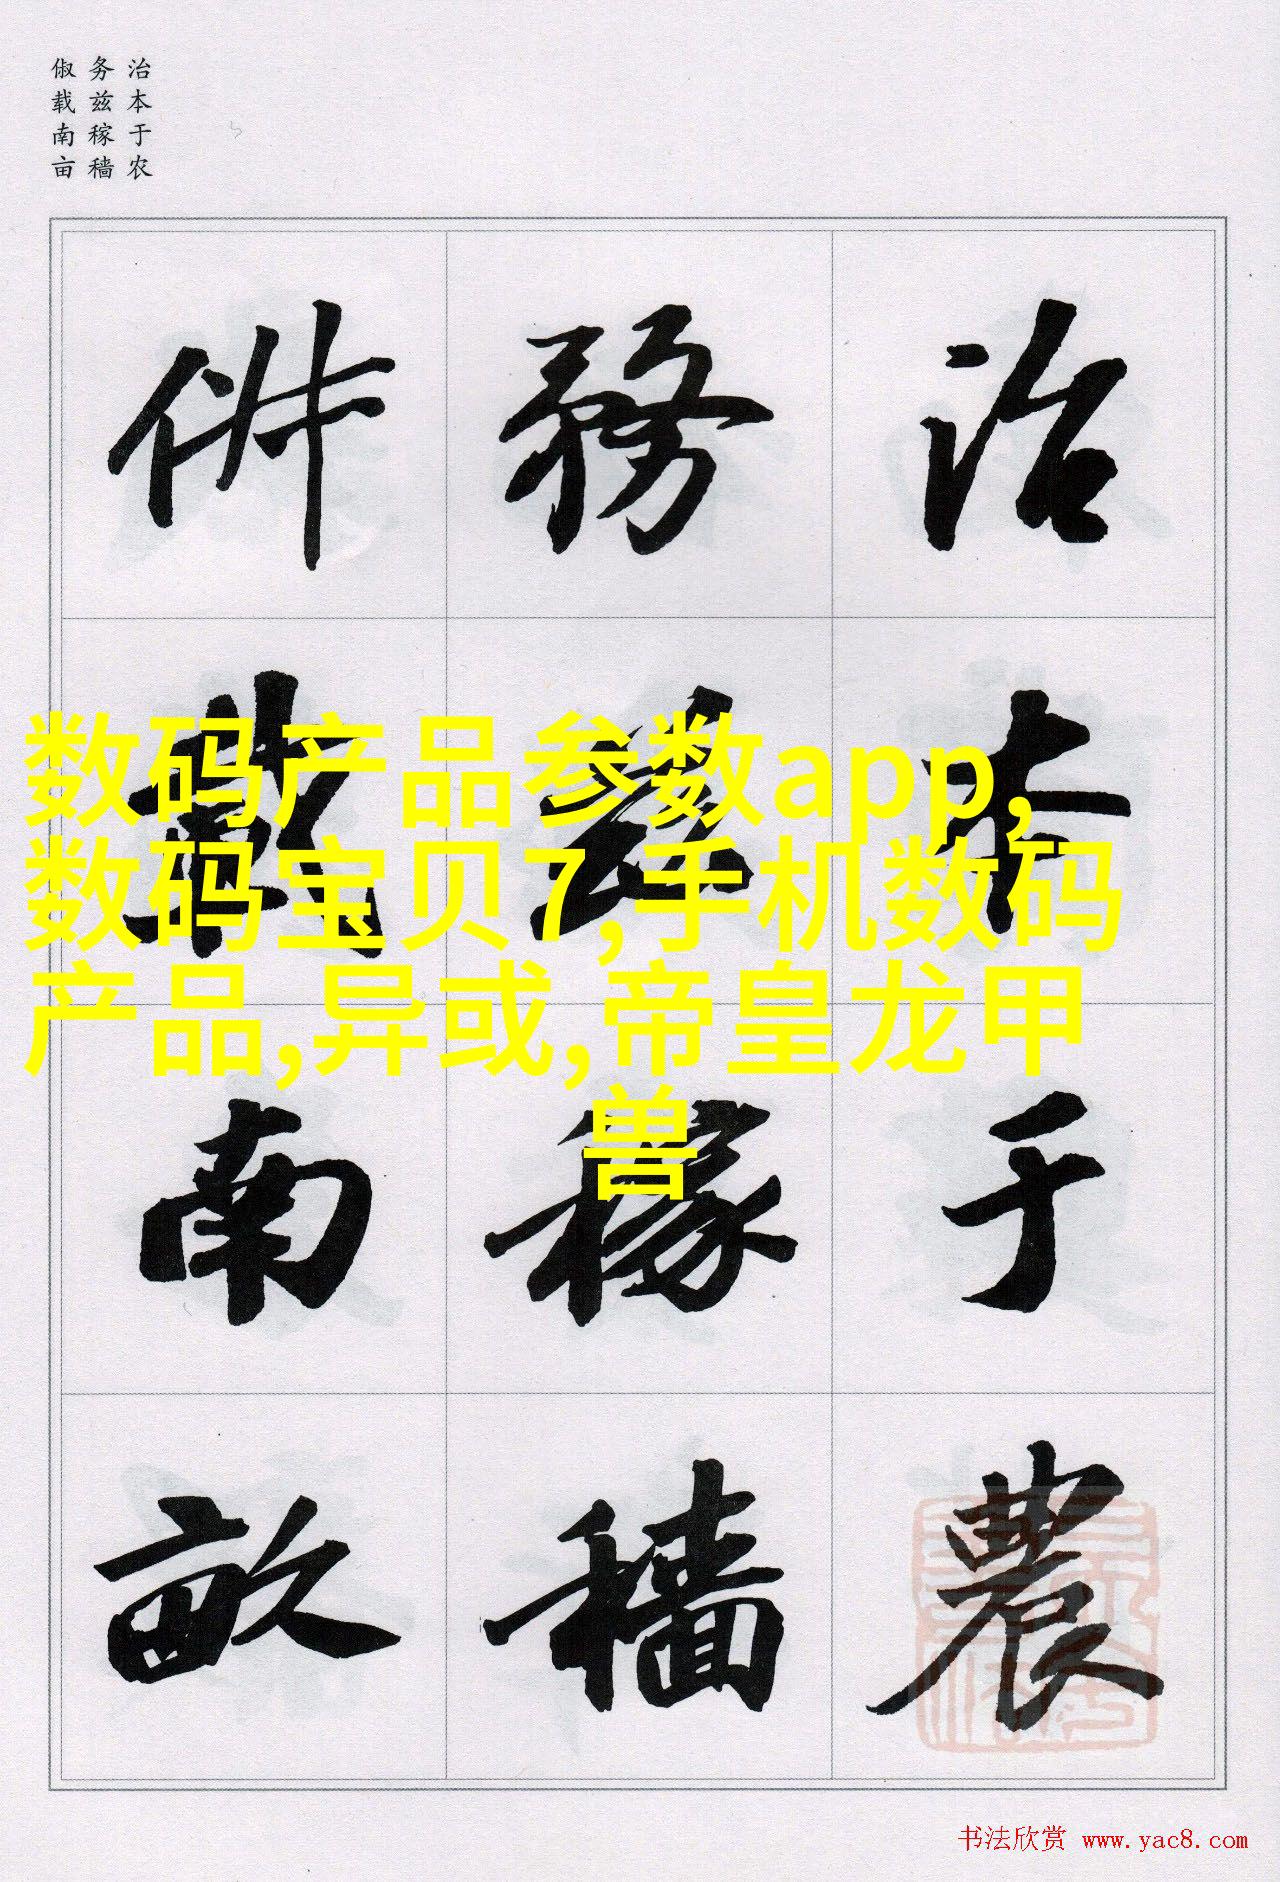 治本于农
务兹稼穑
俶载南亩
治本于農
務兹稼穑
俶載南畝
数码产品参数app,
数码宝贝7,手机数码
产品,异或,帝皇龙甲
兽
书法欣赏 www.yac8.com